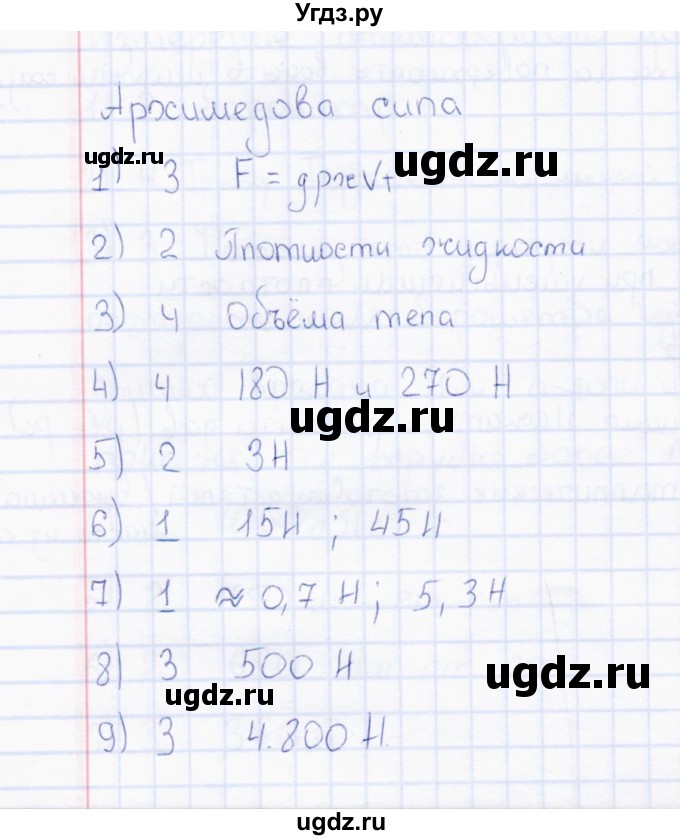 Угдз.ру
Архимедова сила
1) 3 F = gρжVт
2) 2 Плотности жидкости
3) 4 Объёма тела
4) 4 180 Н и 270 Н
5) 2 3Н
6) 1 15Н ; 45Н
7) 1 ≈ 0,7 Н; 5,3Н
8) 3 500 Н
9) 3 4.800 Н.
ugdz.ru
ugdz.ru
ugdz.ru
ugdz.ru
ugdz.ru
ugdz.ru
ugdz.ru